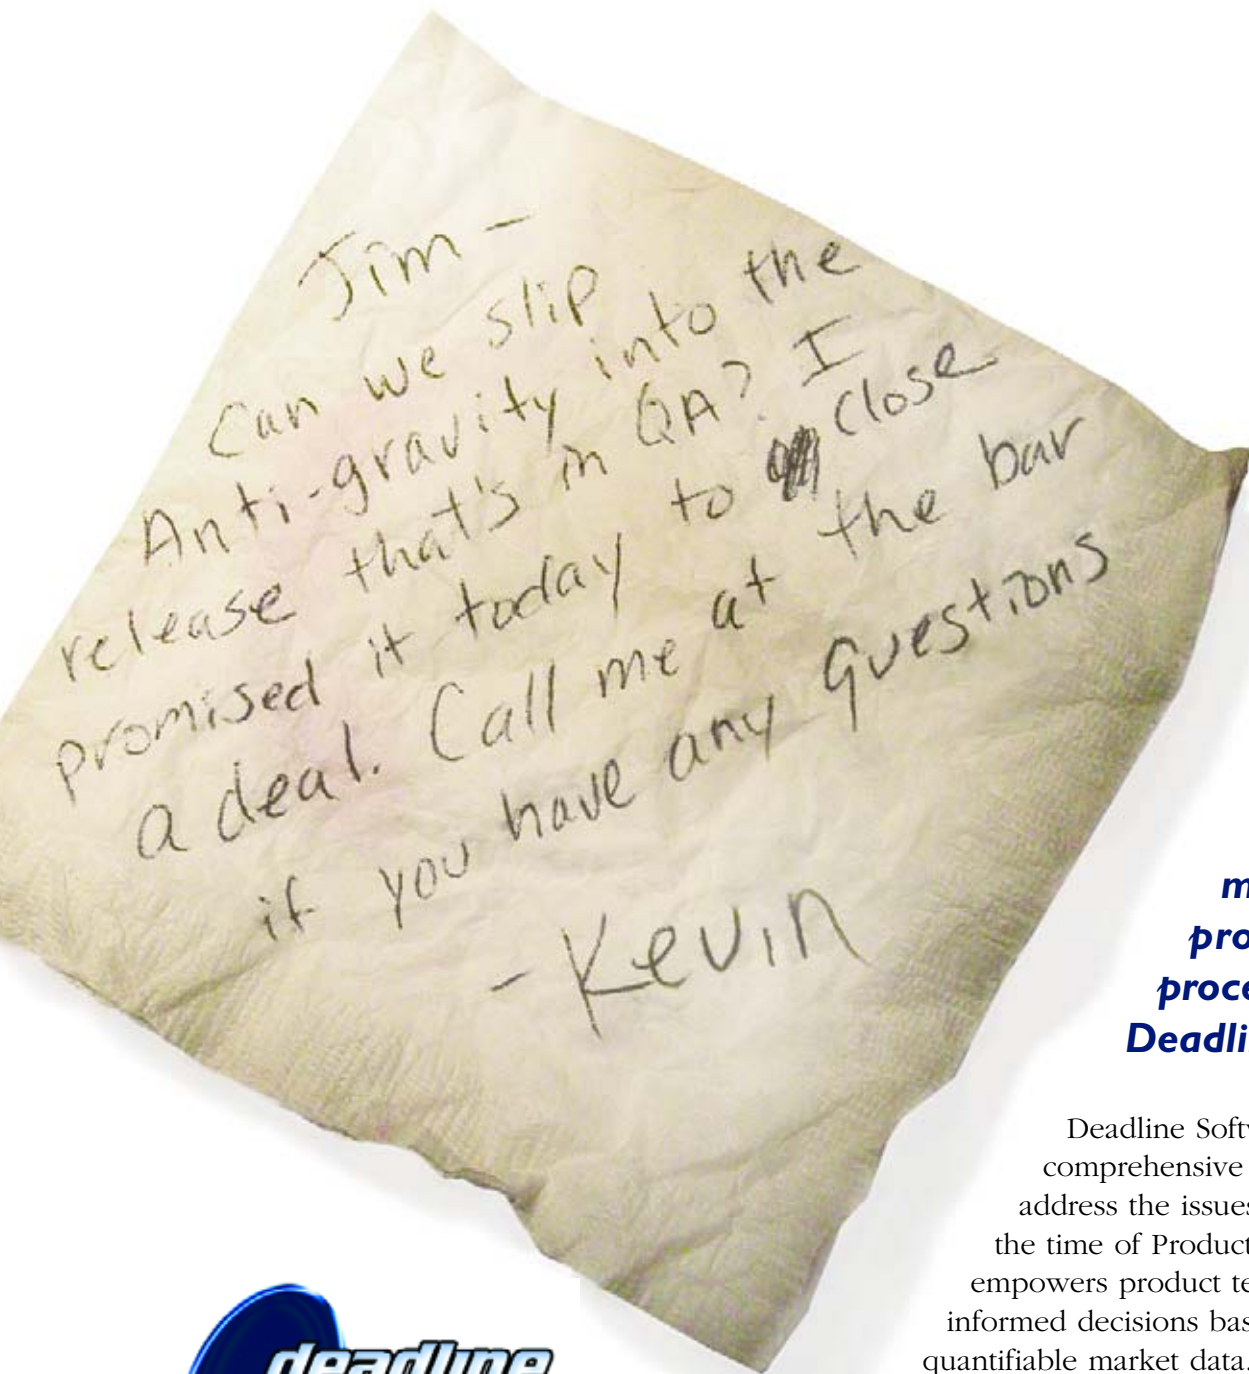 Jim -
Can we slip
Anti-gravity into the
release that's in QA? I
promised it today to close
a deal. Call me at the bar
if you have any questions
- Kevin
Deadline
comprehensive
address the issues
the time of Product
empowers product
informed decisions
quantifiable market data.
deadline